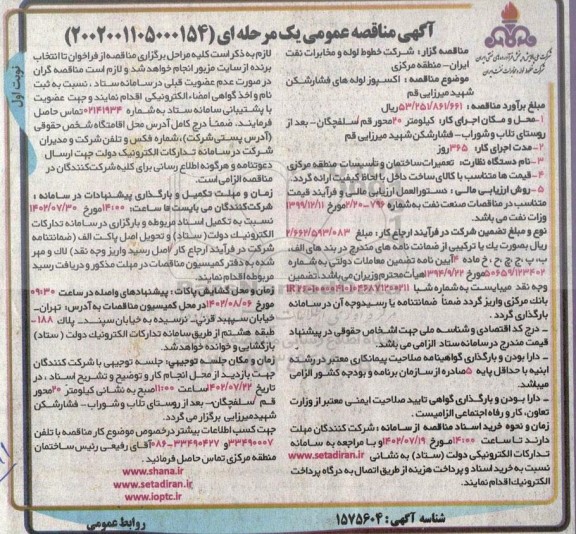 آگهی مناقصه عمومی یک مرحله ای (۲۰۰۲۰۰۱۱۰۵۰۰۰۱۵۴)
نوبت اول
مناقصه گزار: شرکت خطوط لوله و مخابرات نفت
ایران- منطقه مرکزی
موضوع مناقصه: اکسپوز لوله های فشارشکن
شهید میرزایی قم
مبلغ برآورد مناقصه: ۵۳/۲۵۱/۸۶۱/۶۶۱ریال
۱-محل و مکان اجرای کار: کیلومتر ۲۰محور قم/سلفچگان-بعد از
روستای تلاب و شوراب- فشارشکن شهید میرزایی قم
۲-مدت اجرای کار: ۳۶۵ روز
۳-نام دستگاه نظارت: تعمیرات ساختمان و تأسیسات منطقه مرکزی
۴-قیمت ها متناسب با کالای ساخت داخل با لحاظ کیفیت ارائه گردد.
۵-روش ارزیابی مالی: دستورالعمل ارزیابی مالی و فرآیند قیمت
متناسب در مناقصات صنعت نفت به شماره ۷۹۶-۲/۲۰مورخ ۱۳۹۹/۱۲/۱۱
وزات نفت می باشد.
نوع و مبلغ تضمین شرکت در فرآیند ارجاع کار: مبلغ ۲/۶۶۲/۵۹۳/۰۸۳
ریال بصورت یک یا ترکیبی از ضمانت نامه های مندرج در بند های الف،
ب، پ، ج، چ، ح، خ ماده ۴آیین نامه تضمین معاملات دولتی به شماره
۱۲۳۴۰۲/ت۵۰۶۵۹ه مورخ ۱۳۹۴/۹/۲۲هیأت محترم وزیران می باشد. تضمین
وجه نقد میبایست به شماره شبا
بانک مرکزی واریز گردد ضمناً ضمانتنامه یا رسید وجه آن در سامانه
بارگذاری گردد.
- درج کد اقتصادی و شناسه ملی جهت اشخاص حقوقی در پیشنهاد
قیمت مندرج در سامانه ستاد الزامی می باشد.
- دارا بودن و بارگذاری گواهینامه صلاحیت پیمانکاری معتبر در رشته
ابنیه با حداقل پایه ۵صادره از سازمان برنامه و بودجه کشور الزامی
میباشد.
- دارا بودن و بارگذاری گواهی تایید صلاحیت ایمنی معتبر از وزارت
تعاون، کار و رفاه اجتماعی الزامیست.
زمان و نحوه خرید اسناد مناقصه از سامانه: شرکت کنندگان مهلت
دارند تا ساعت ۱۴:۰۰مورخ ۱۴۰۲/۰۷/۱۹و با مراجعه به سامانه
تدارکات الکترونیکی دولت (ستاد) به نشانی www.setadiran.ir
نسبت به خرید اسناد و پرداخت هزینه از طریق اتصال به درگاه پرداخت
الکترونیک اقدام نمایند.
لازم به ذکر است کلیه مراحل برگزاری مناقصه از فراخوان تا انتخاب
برنده از سایت مزبور انجام خواهد شد و لازم است مناقصه گران
در صورت عدم عضویت قبلی در سامانه ستاد، نسبت به ثبت
نام و اخذ گواهی امضاء الکترونیکی اقدام نمایند و جهت عضویت
با پشتیبانی سامانه ستاد به شماره ۰۲۱۴۱۹۳۴ تماس حاصل
فرمایند. ضمناً درج کامل آدرس محل اقامتگاه شخص حقوقی
(آدرس پستی شرکت)، شماره فکس و تلفن شرکت و مدیران
شرکت در سامانه تدارکات الکترونیک دولت جهت ارسال
دعوتنامه و هرگونه اطلاع رسانی برای کلیه شرکت کنندگان در
مناقصه الزامی است.
زمان و مهلت تکمیل و بارگذاری پیشنهادات در سامانه:
شرکت کنندگان می بایست تا ساعت: ۱۴:۰۰مورخ ۱۴۰۲/۰۷/۳۰
نسبت به تکمیل اسناد مربوطه و بارگزاری در سامانه تدارکات
الکترونیک دولت (ستاد) و تحویل اصل پاکت الف (ضمانتنامه
شرکت در فرآیند ارجاع کار/اصل رسید واریز وجه نقد) لاک و مهر
شده به دفتر کمیسیون مناقصات در مهلت مذکور و دریافت رسید
مربوطه اقدام نمایند.
زمان و محل گشایش پاکات: پیشنهادهای واصله در ساعت ۰۹:۳۰
مورخ ۱۴۰۲/۰۸/۰۶در محل کمیسیون مناقصات به آدرس: تهران-
خیابان سپهبد قرنی- نرسیده به خیابان سپند- پلاک ۱۸۸-
طبقه هشتم از طریق سامانه تدارکات الکترونیک دولت (ستاد)
بازگشایی و خوانده خواهد شد.
زمان و مکان جلسه توجیهی: جلسه توجیهی با شرکت کنندگان
جهت بازدید از محل انجام کار و توضیح و تشریح اسناد، در
تاریخ ۱۴۰۲/۰۷/۲۲ساعت ۱۱:۰۰صبح به نشانی کیلومتر ۲۰محور
قم/سلفچگان- بعد از روستای تلاب و شوراب- فشارشکن
شهید میرزایی برگزار می گردد.
جهت کسب اطلاعات بیشتر در خصوص موضوع کار مناقصه با تلفن
۳۳۴۹۰۰۰۷و ۳۳۴۹۰۴۲۷-۰۸۶آقای رفیعی رئیس ساختمان
منطقه مرکزی تماس حاصل فرمائید.
www.shana.ir
www.setadiran.ir
www.ioptc.ir
شناسه آگهی: ۱۵۷۵۶۰۴
روابط عمومی